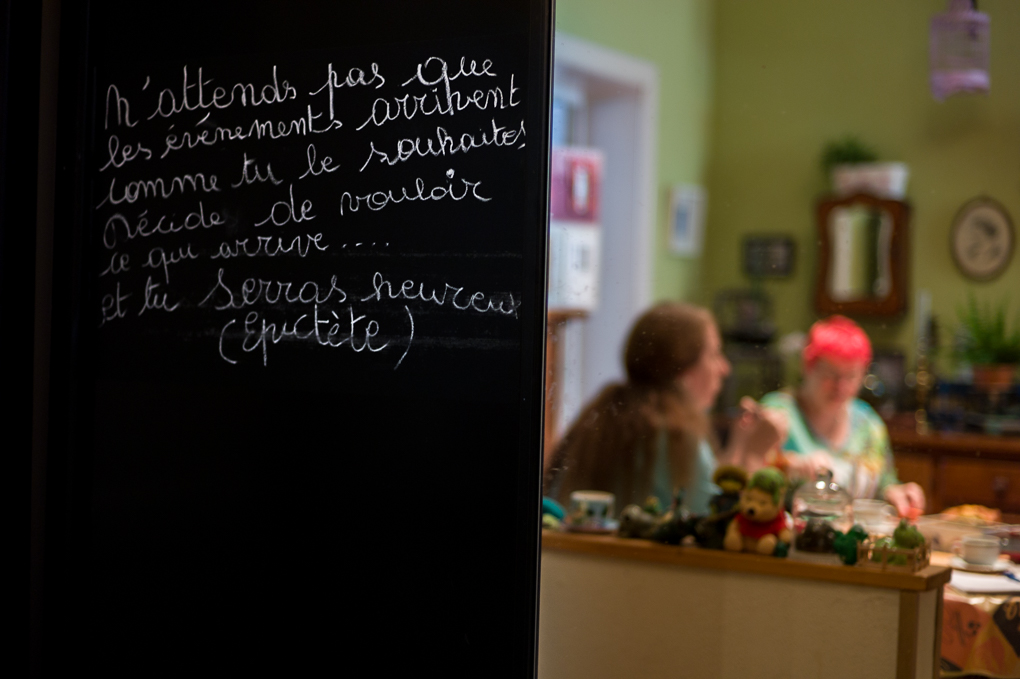 N'attends pas que
les événements arrivent
comme tu le souhaites
Décide de vouloir
ce qui arrive ....
et tu serras heureux
(Epictète)